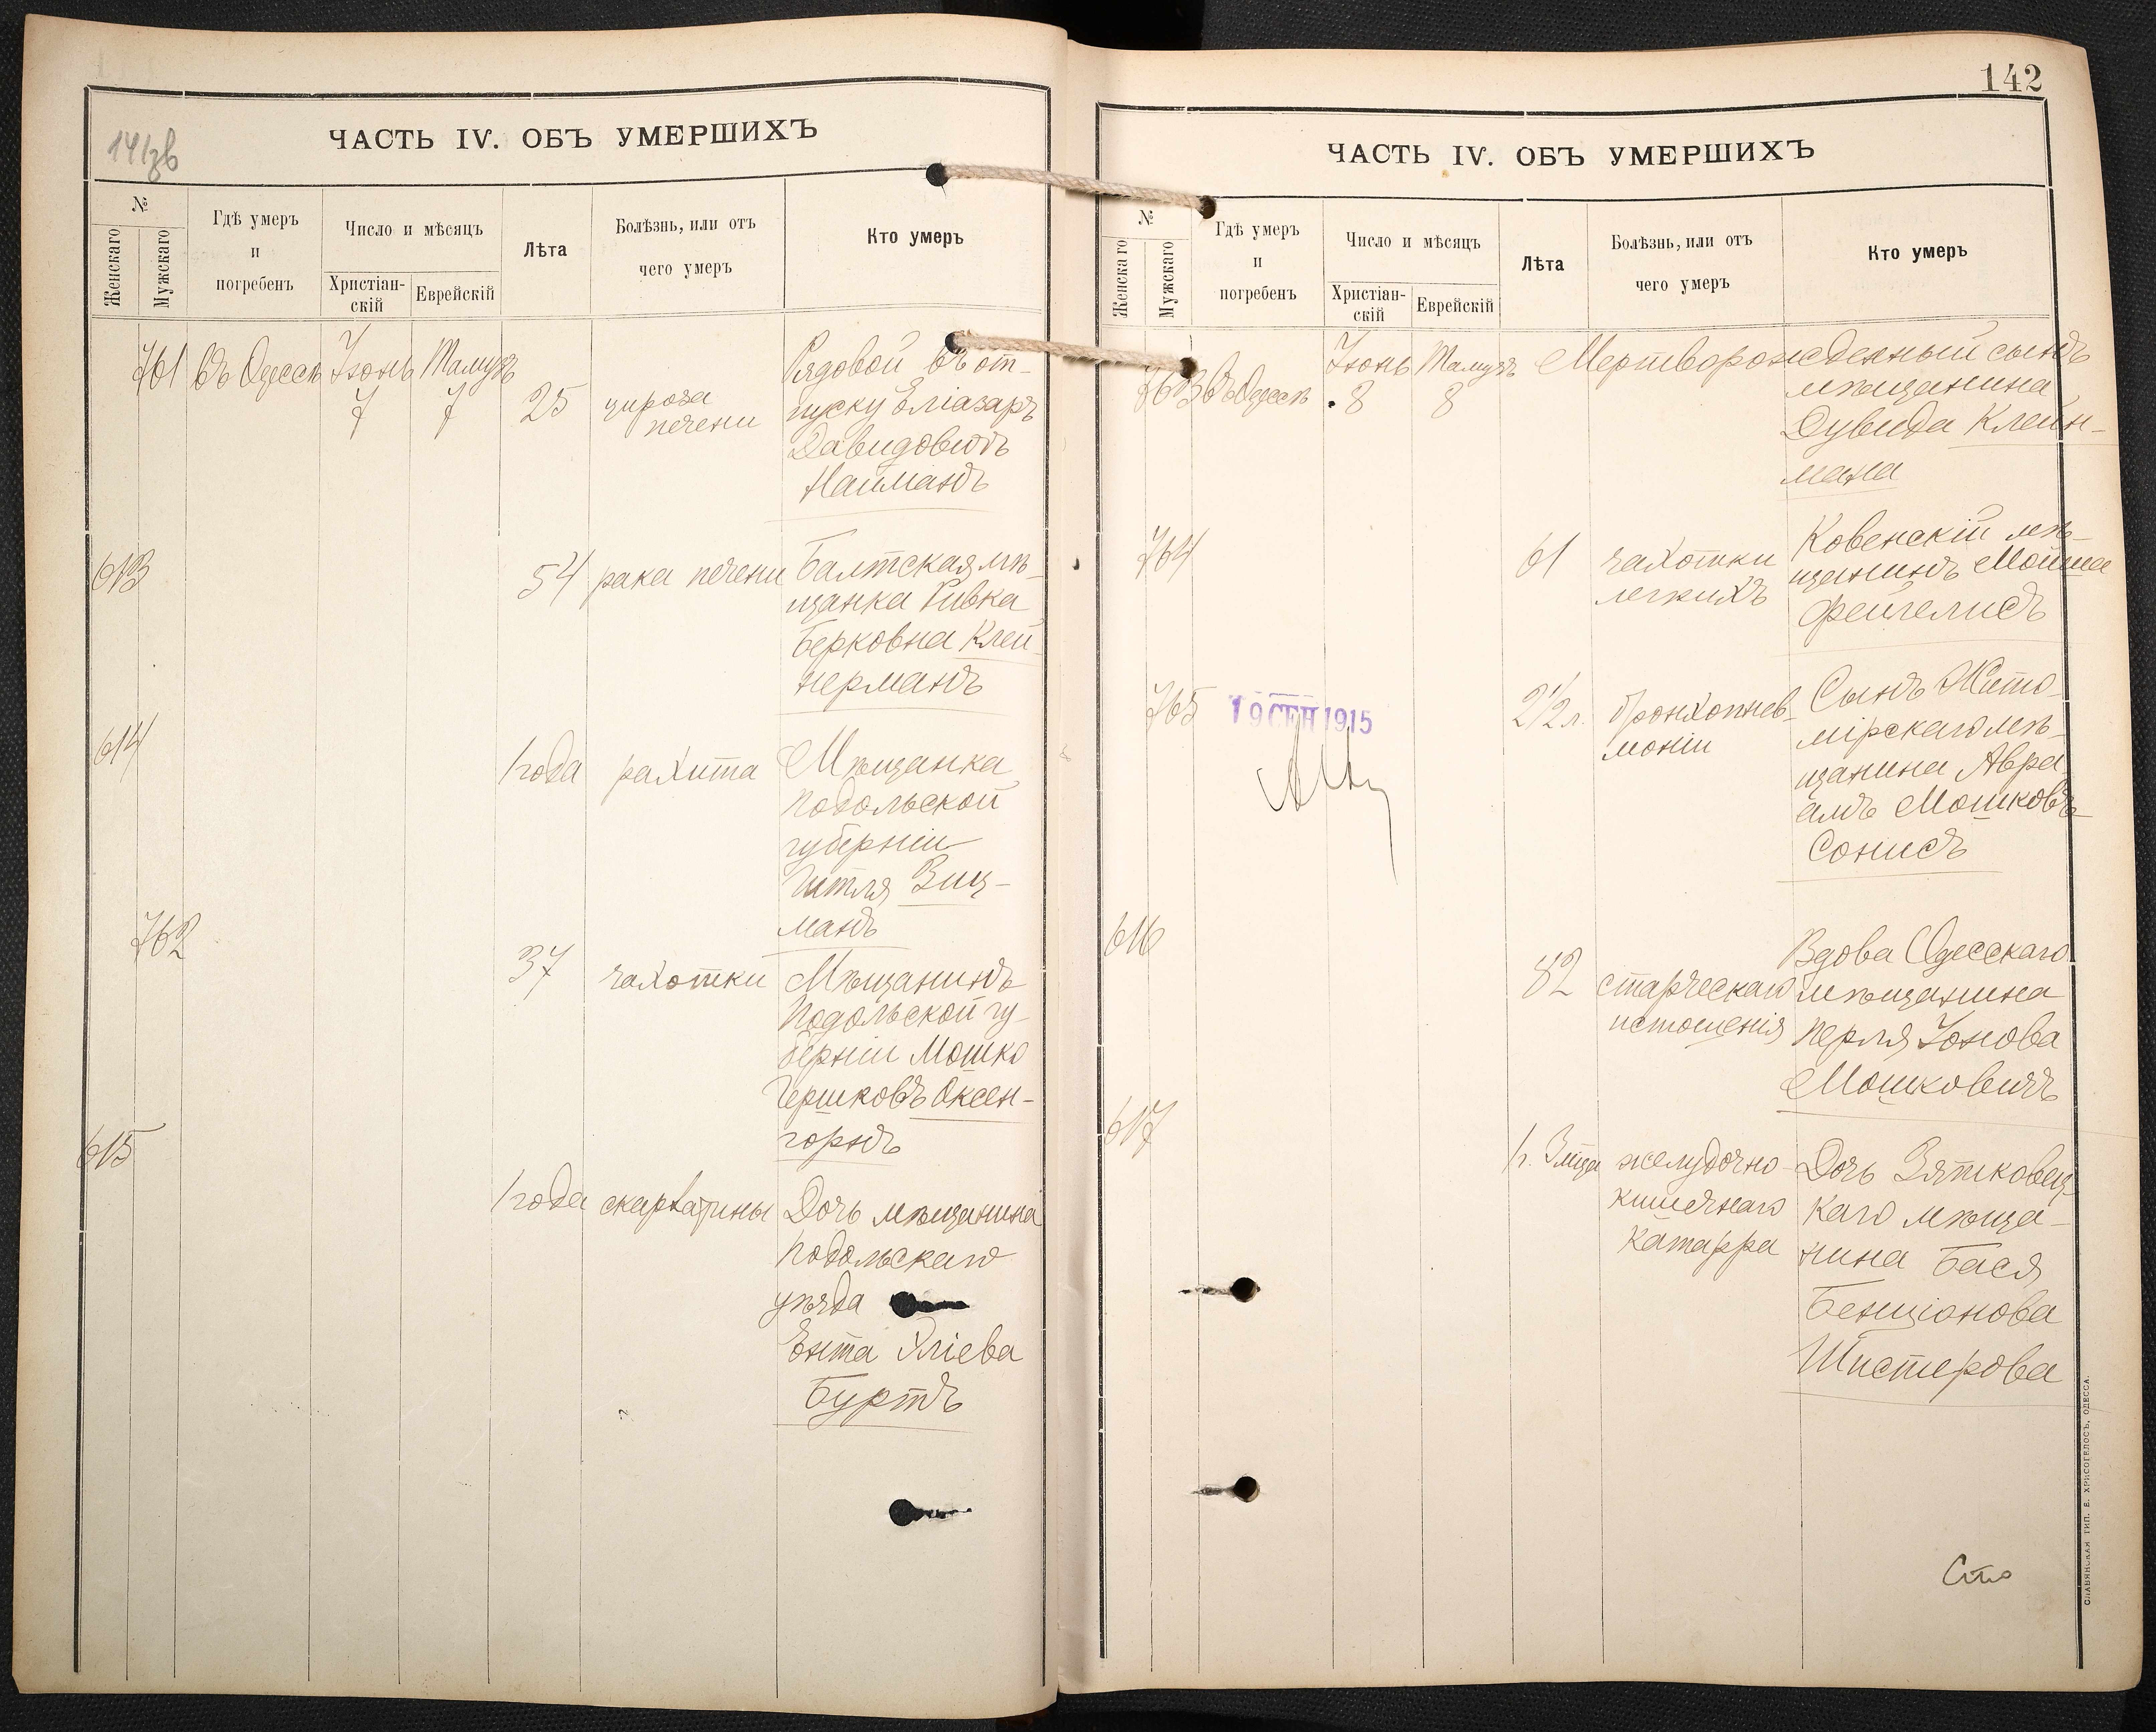 ЧАСТЬ IV. ОБЪ УМЕРШИХЪ
№
Женскаго
Мужскаго
Гдѣ умеръ
и
погребенъ
Число и мѣсяцъ
Христіан-
скій
Еврейскій
Лѣта
Болѣзнь, или отъ
чего умеръ
Кто умеръ
761 въ Одессѣ Іюнь Тамузъ
7 7 25 цироза
печени
Рядовой въ от-
пуску Еліазаръ
Давидовичъ
Найманъ
613 54 рака печени Балтская мѣ-
щанка Ривка
Берковна Клей-
нерманъ
614 1 года рахита Мѣщанка
Подольской
губерніи
Гитля Зиц-
манъ
762 37 чахотки Мѣщанинъ
Подольской гу-
берніи Мошко
Гершковъ Оксен-
горнъ
615 1 года скарлатины Дочь мѣщанина
Подольскаго
уѣзда
Ента Хліева
Буртъ
142
ЧАСТЬ IV. ОБЪ УМЕРШИХЪ
№
Женскаго
Мужскаго
Гдѣ умеръ
и
погребенъ
Число и мѣсяцъ
Христіан-
скій
Еврейскій
Лѣта
Болѣзнь, или отъ
чего умеръ
Кто умеръ
763 въ Одессѣ Іюнь Тамузъ Мертворожденный сынъ
8 8 мѣщанина
Дувида Клейн-
мана
764 61 чахотки
легкихъ
Ковенскій мѣ-
щанинъ Мойша
Фейгелисъ
765 19 СЕН 1915 2½ л. бронхопнев-
моніи
Сынъ Жито-
мірскаго мѣ-
щанина Авра-
амъ Мошковъ
Сонисъ
616 82 старческаго
истощенія
Вдова Одесскаго
мѣщанина
Перля Іонова
Мошковичъ
617 1 г. 3 мѣца желудочно-
кишечнаго
катарра
Дочь Зятковец-
каго мѣща-
нина Бася
Бенціонова
Шистерова
Сто
СЛАВЯНСКАЯ ТИП. Е. ХРИСОГЕЛОСЪ, ОДЕССА.